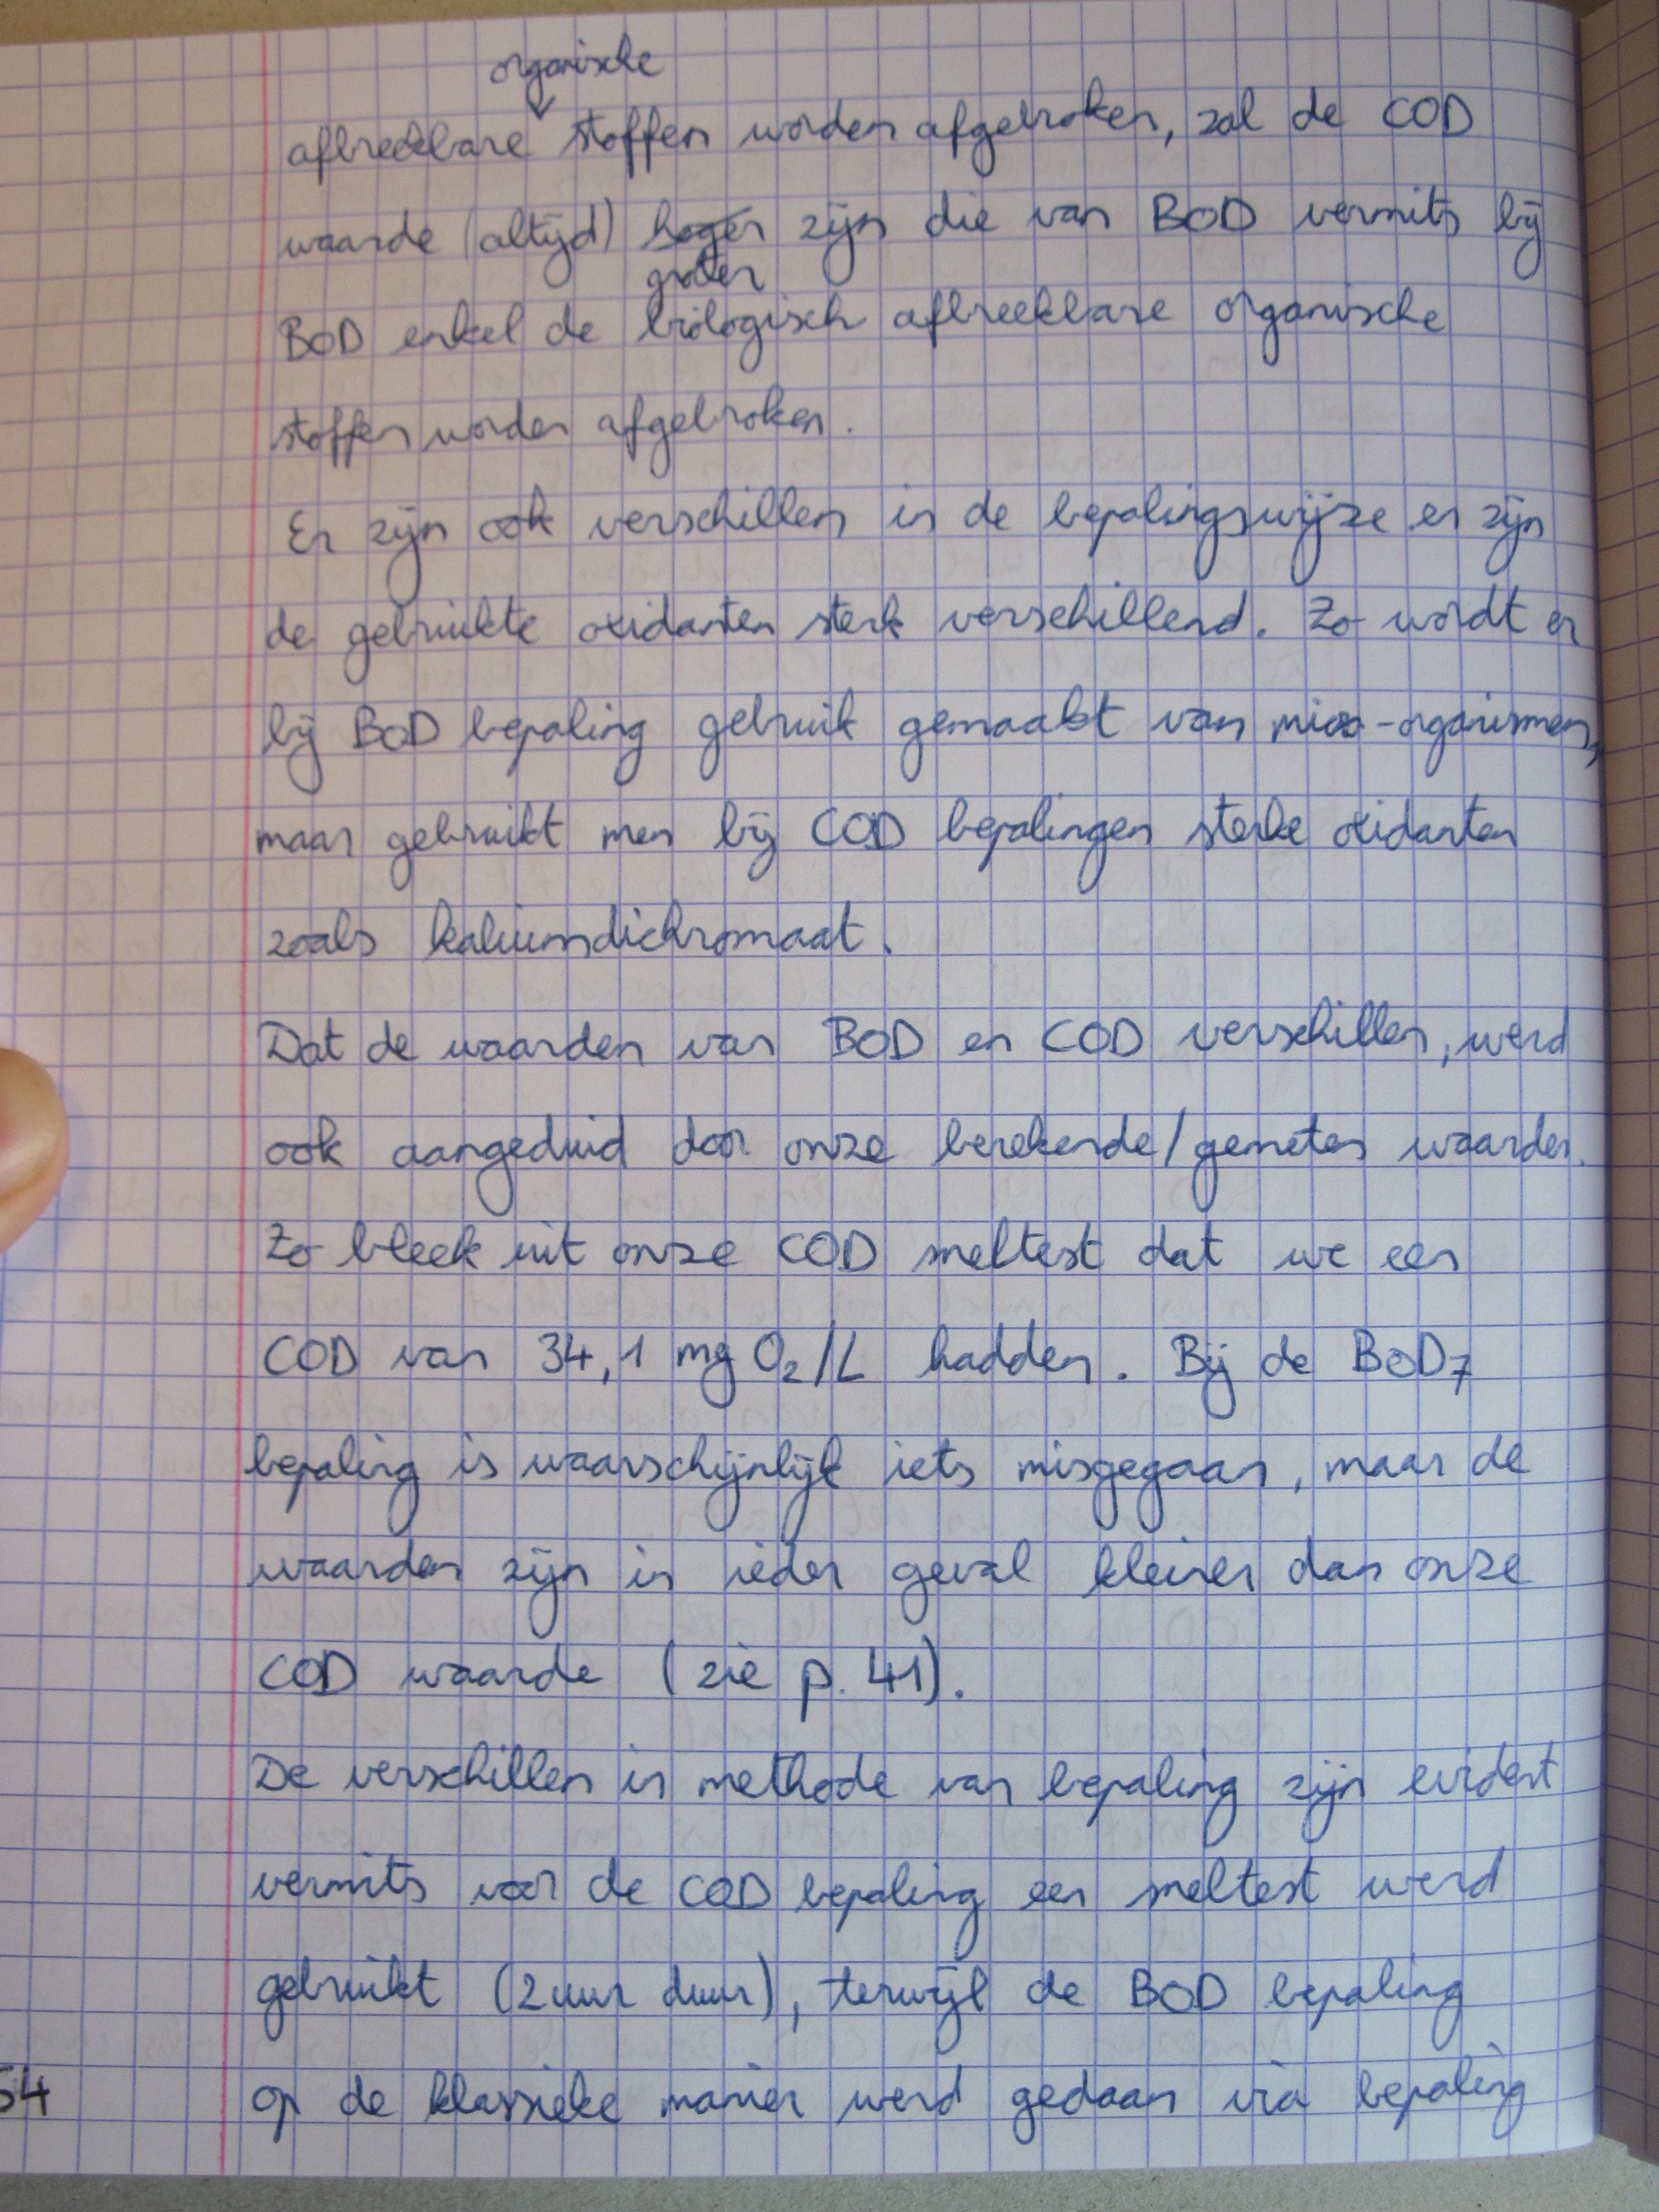 organische
afbreekbare stoffen worden afgebroken, zal de COD
waarde (altijd) hoger zijn die van BOD vermits bij
groter
BOD enkel de biologisch afbreekbare organische
stoffen worden afgebroken.
Er zijn ook verschillen in de bepalingswijze en zijn
de gebruikte oxidanten sterk verschillend. Zo wordt er
bij BOD bepaling gebruik gemaakt van micro-organismen,
maar gebruikt men bij COD bepalingen sterke oxidanten
zoals kaliumdichromaat.
Dat de waarden van BOD en COD verschillen, werd
ook aangeduid door onze berekende/gemeten waarden.
Zo bleek uit onze COD sneltest dat we een
COD van 34,1 mg O₂/L hadden. Bij de BOD₇
bepaling is waarschijnlijk iets misgegaan, maar de
waarden zijn in ieder geval kleiner dan onze
COD waarde (zie p. 41).
De verschillen in methode van bepaling zijn evident
vermits voor de COD bepaling een sneltest werd
gebruikt (2 uur duur), terwijl de BOD bepaling
op de klassieke manier werd gedaan via bepaling
54